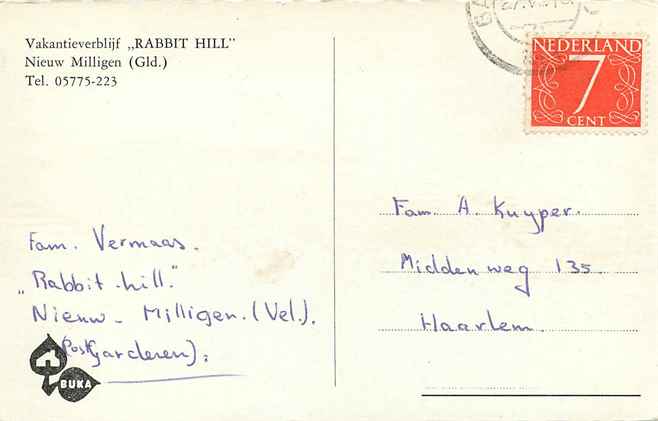 Vakantieverblijf „RABBIT HILL"
Nieuw Milligen (Gld.)
Tel. 05775-223
NEDERLAND
7
CENT
Fam. A. Kuyper.
Middenweg 135
Haarlem.
Fam. Vermaas.
„Rabbit-hill."
Nieuw-Milligen. (Vel.).
(Post Garderen).
BUKA